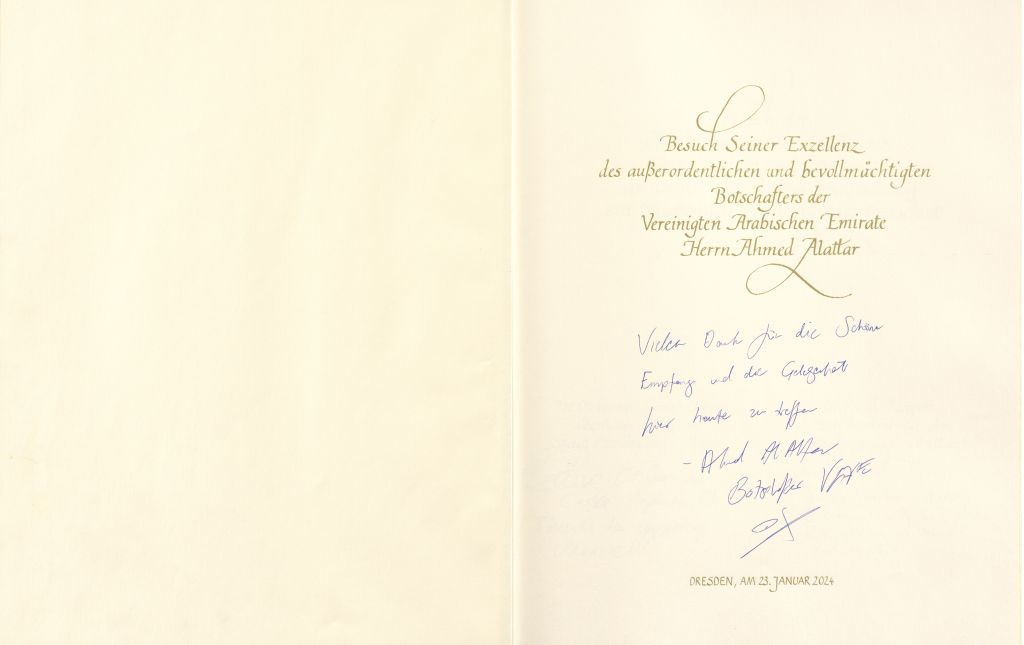 Besuch Seiner Exzellenz
des außerordentlichen und bevollmächtigten
Botschafters der
Vereinigten Arabischen Emirate
Herrn Ahmed Alattar
Vielen Dank für die Schöne
Empfang und die Gelegenheit
hier heute zu treffen
- Ahmed Al Attar
Botschafter VAE
DRESDEN, AM 23. JANUAR 2024